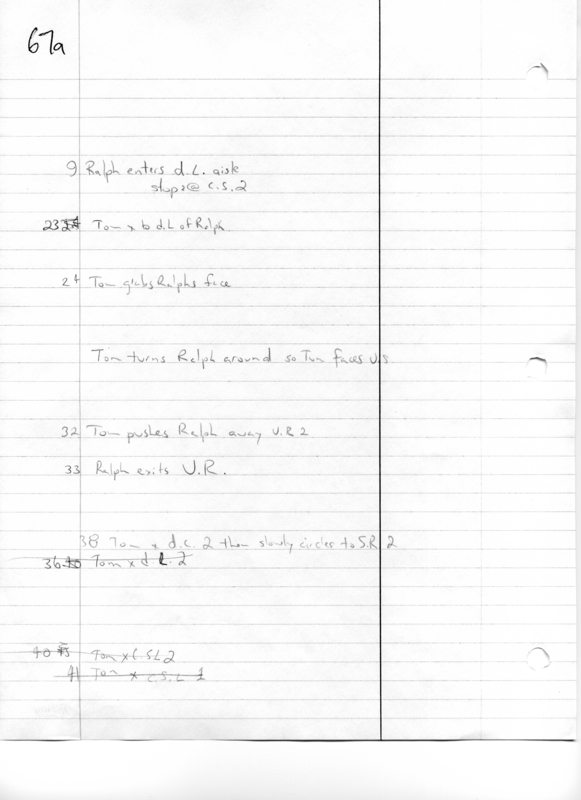 67a
9 Ralph enters d.L. aisle
stops @ C.S.2
23 Tom x to d.L of Ralph
24 Tom grabs Ralphs face
Tom turns Ralph around so Tom faces U.S.
32 Tom pushes Ralph away U.R 2
33 Ralph exits U.R.
38 Tom x d.c. 2 then slowly circles to S.R 2
36 Tom x d L. 2
40 Tom x C.S.L 2
41 Tom x C.S.L 1